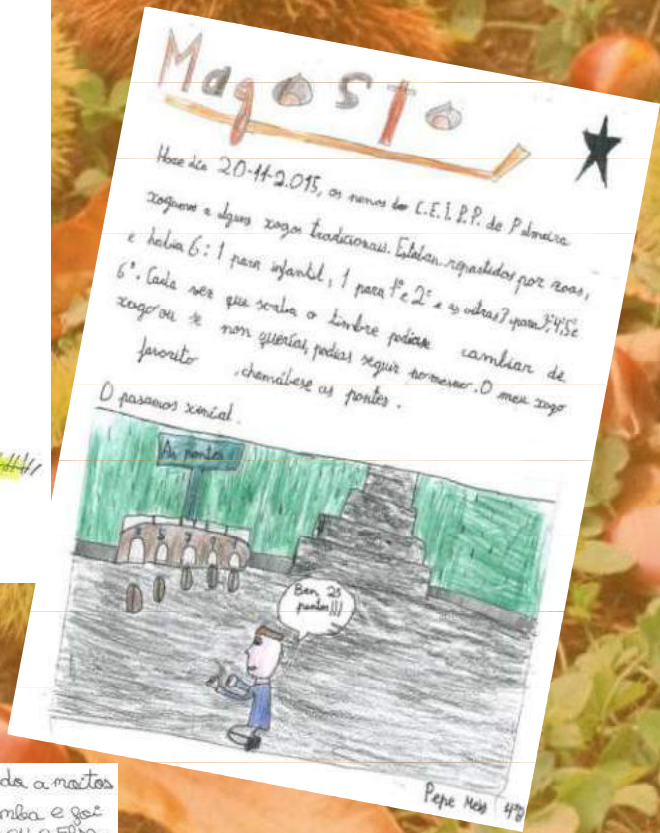 Magosto
Hoxe día 20-11-2.015, os nenos do C.E.I.P.P. de Palmeira
xogamos a algúns xogos tradicionais. Estaban repartidos por zoas,
e había 6: 1 para infantil, 1 para 1º e 2º e as outras 3 para 3º, 4º, 5º e
6º. Cada vez que soaba o timbre podíase cambiar de
xogo ou se non querías, podías seguir no mesmo. O meu xogo
favorito, chamábase as pontes.
O pasamos xenial.
As pontes
5 5 7
Ben, 25
puntos!!!
Pepe 4ºB
da a moitos
mba e foi